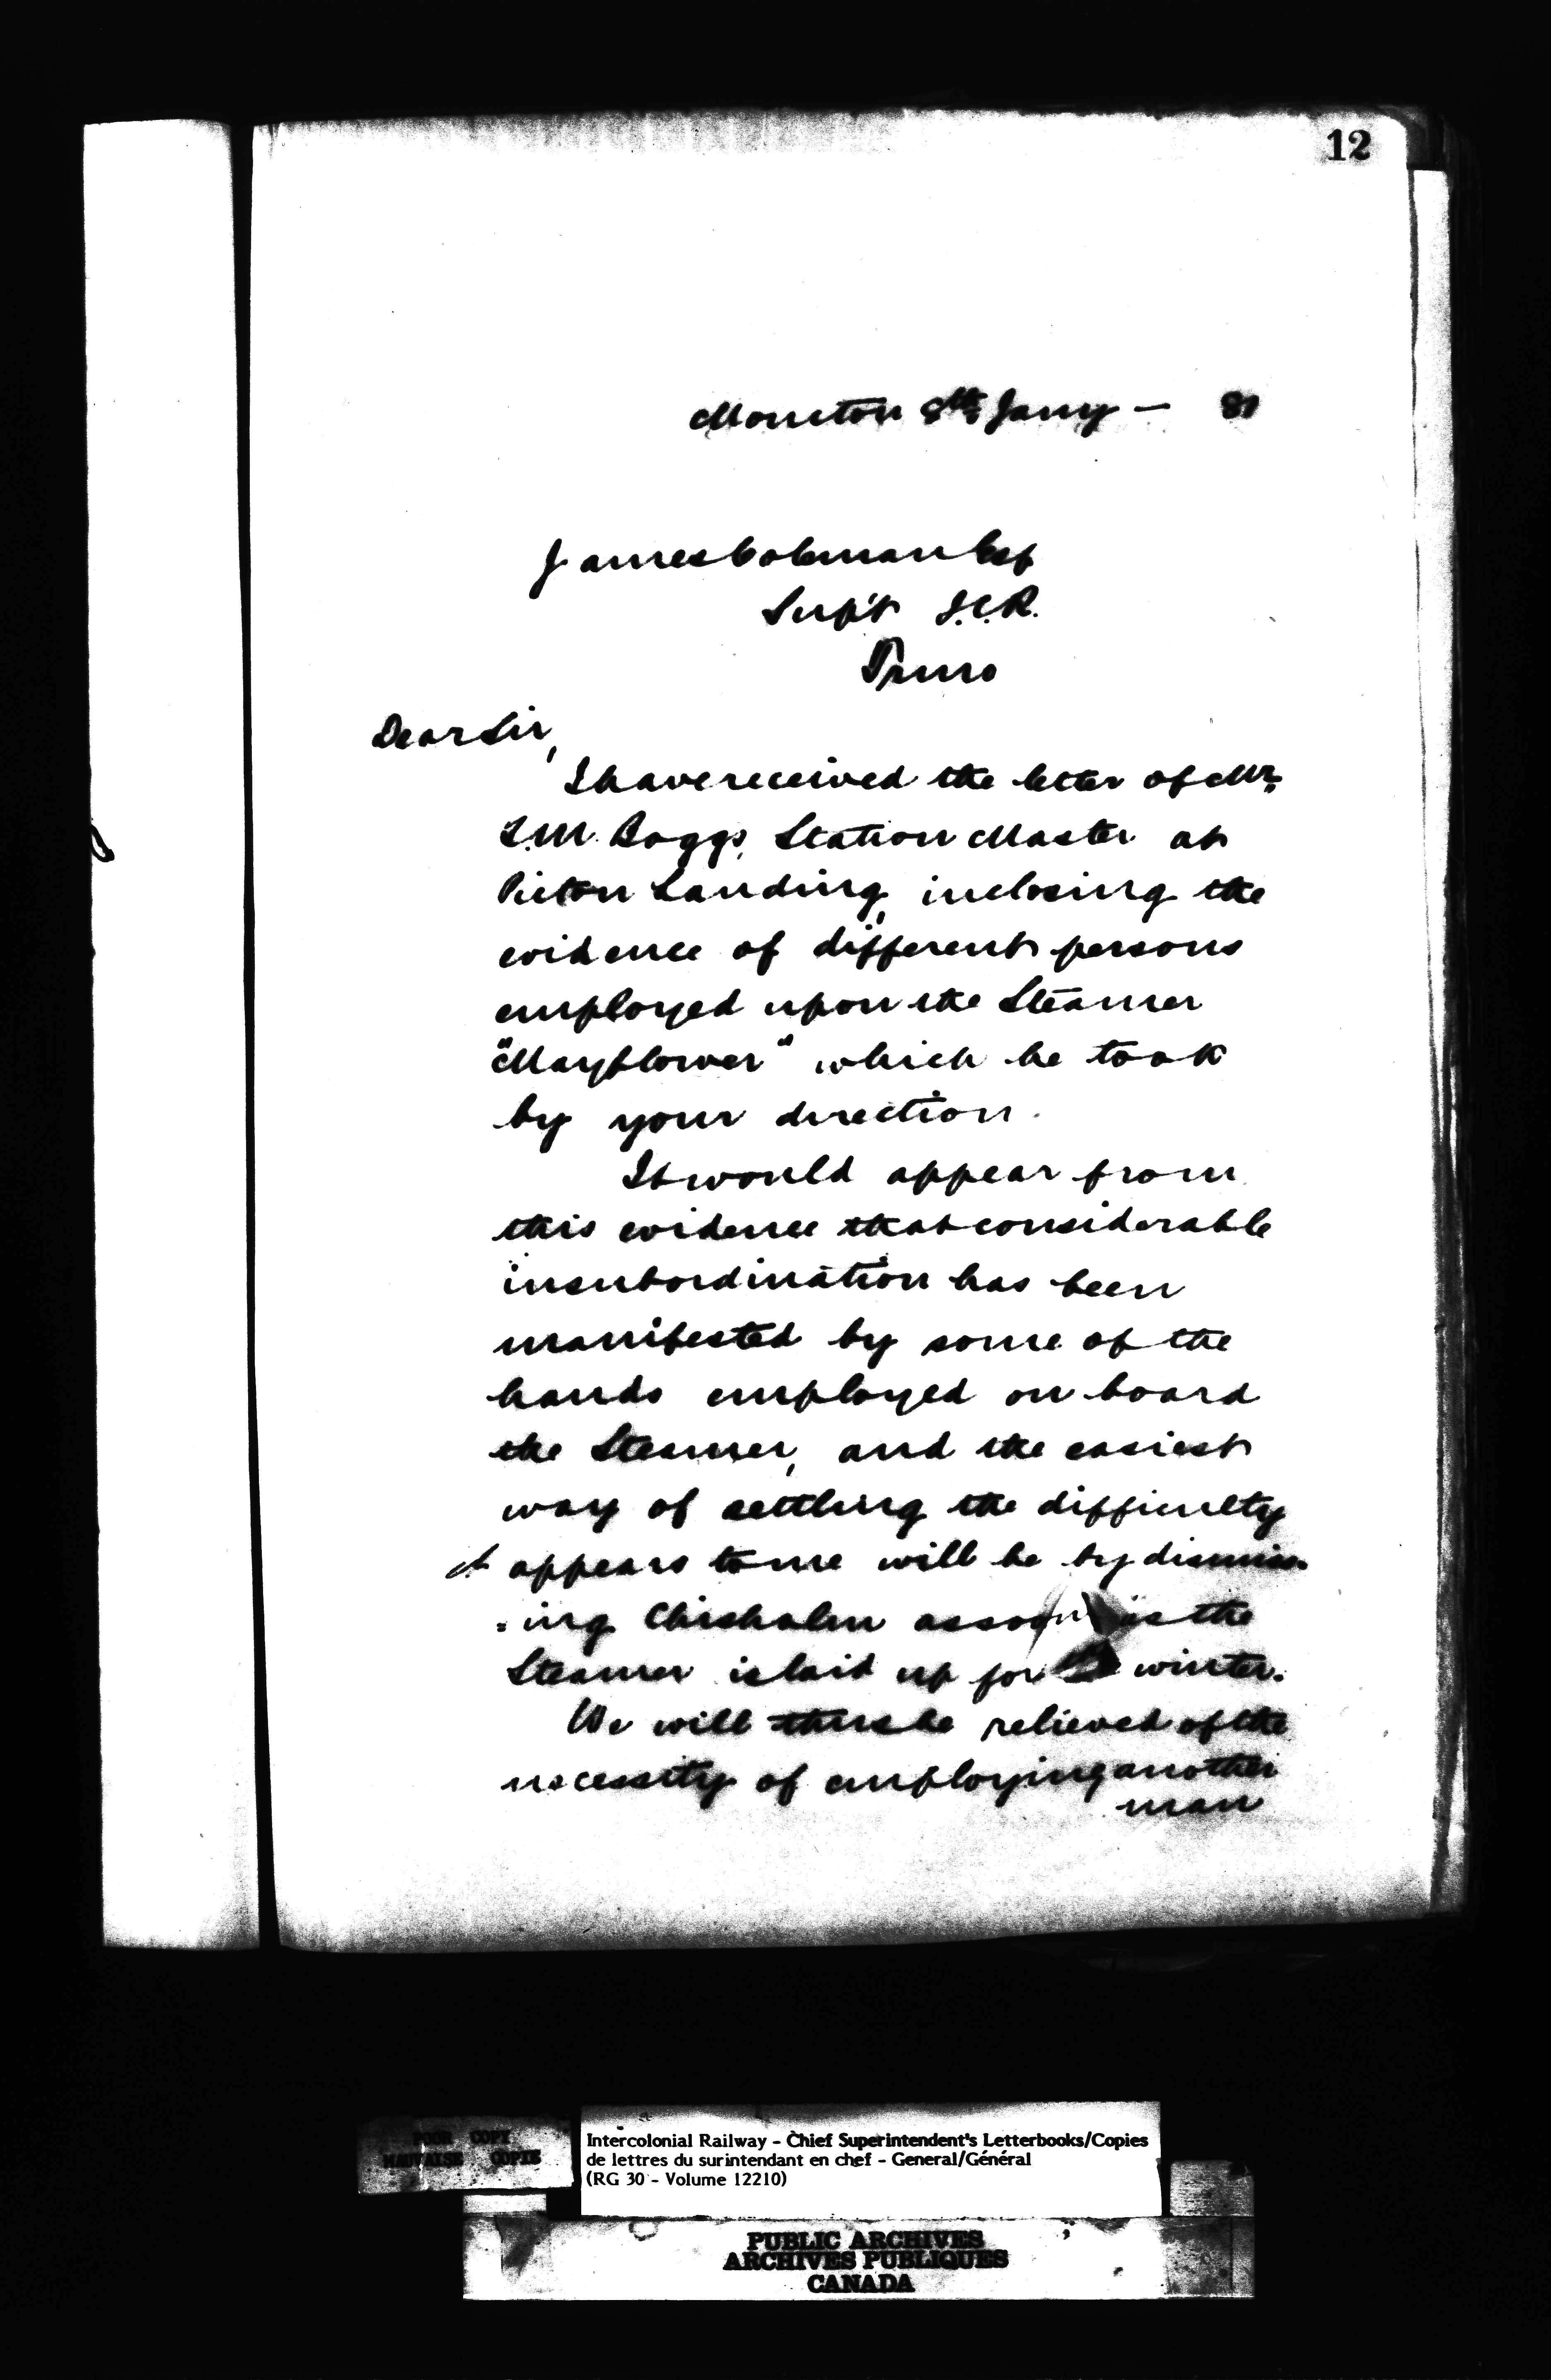 12
Moncton 8th Jany — 81
James Coleman Esq
Sup't I.C.R.
Truro
Dear Sir,
I have received the letter of Mr.
S.M. Boggs, Station Master at
Pictou Landing, inclosing the
evidence of different persons
employed upon the Steamer
"Mayflower" which he took
by your direction.
It would appear from
this evidence that considerable
insubordination has been
manifested by some of the
hands employed on board
the Steamer, and the easiest
way of settling the difficulty
it appears to me will be by dismiss-
=ing Chisholm as soon as the
Steamer is laid up for the winter.
We will thus be relieved of the
necessity of employing another
man
POOR COPY
MAUVAISE COPIE
Intercolonial Railway - Chief Superintendent's Letterbooks/Copies
de lettres du surintendant en chef - General/Général
(RG 30 - Volume 12210)
PUBLIC ARCHIVES
ARCHIVES PUBLIQUES
CANADA